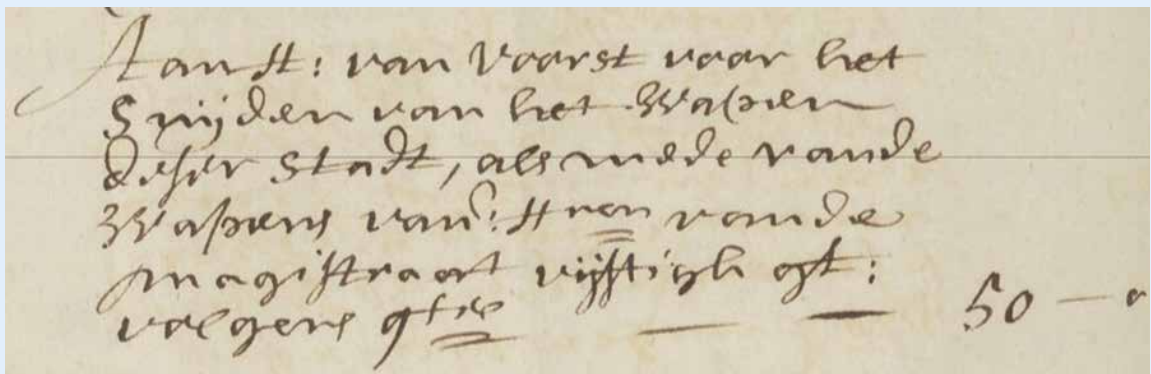 Aan H: van Voorst voor het
Snijden van het Wapen
deser Stadt, als mede vande
Wapens van: Hren vande
Magistraat vijftigh glt:
volgens qtie 50 —